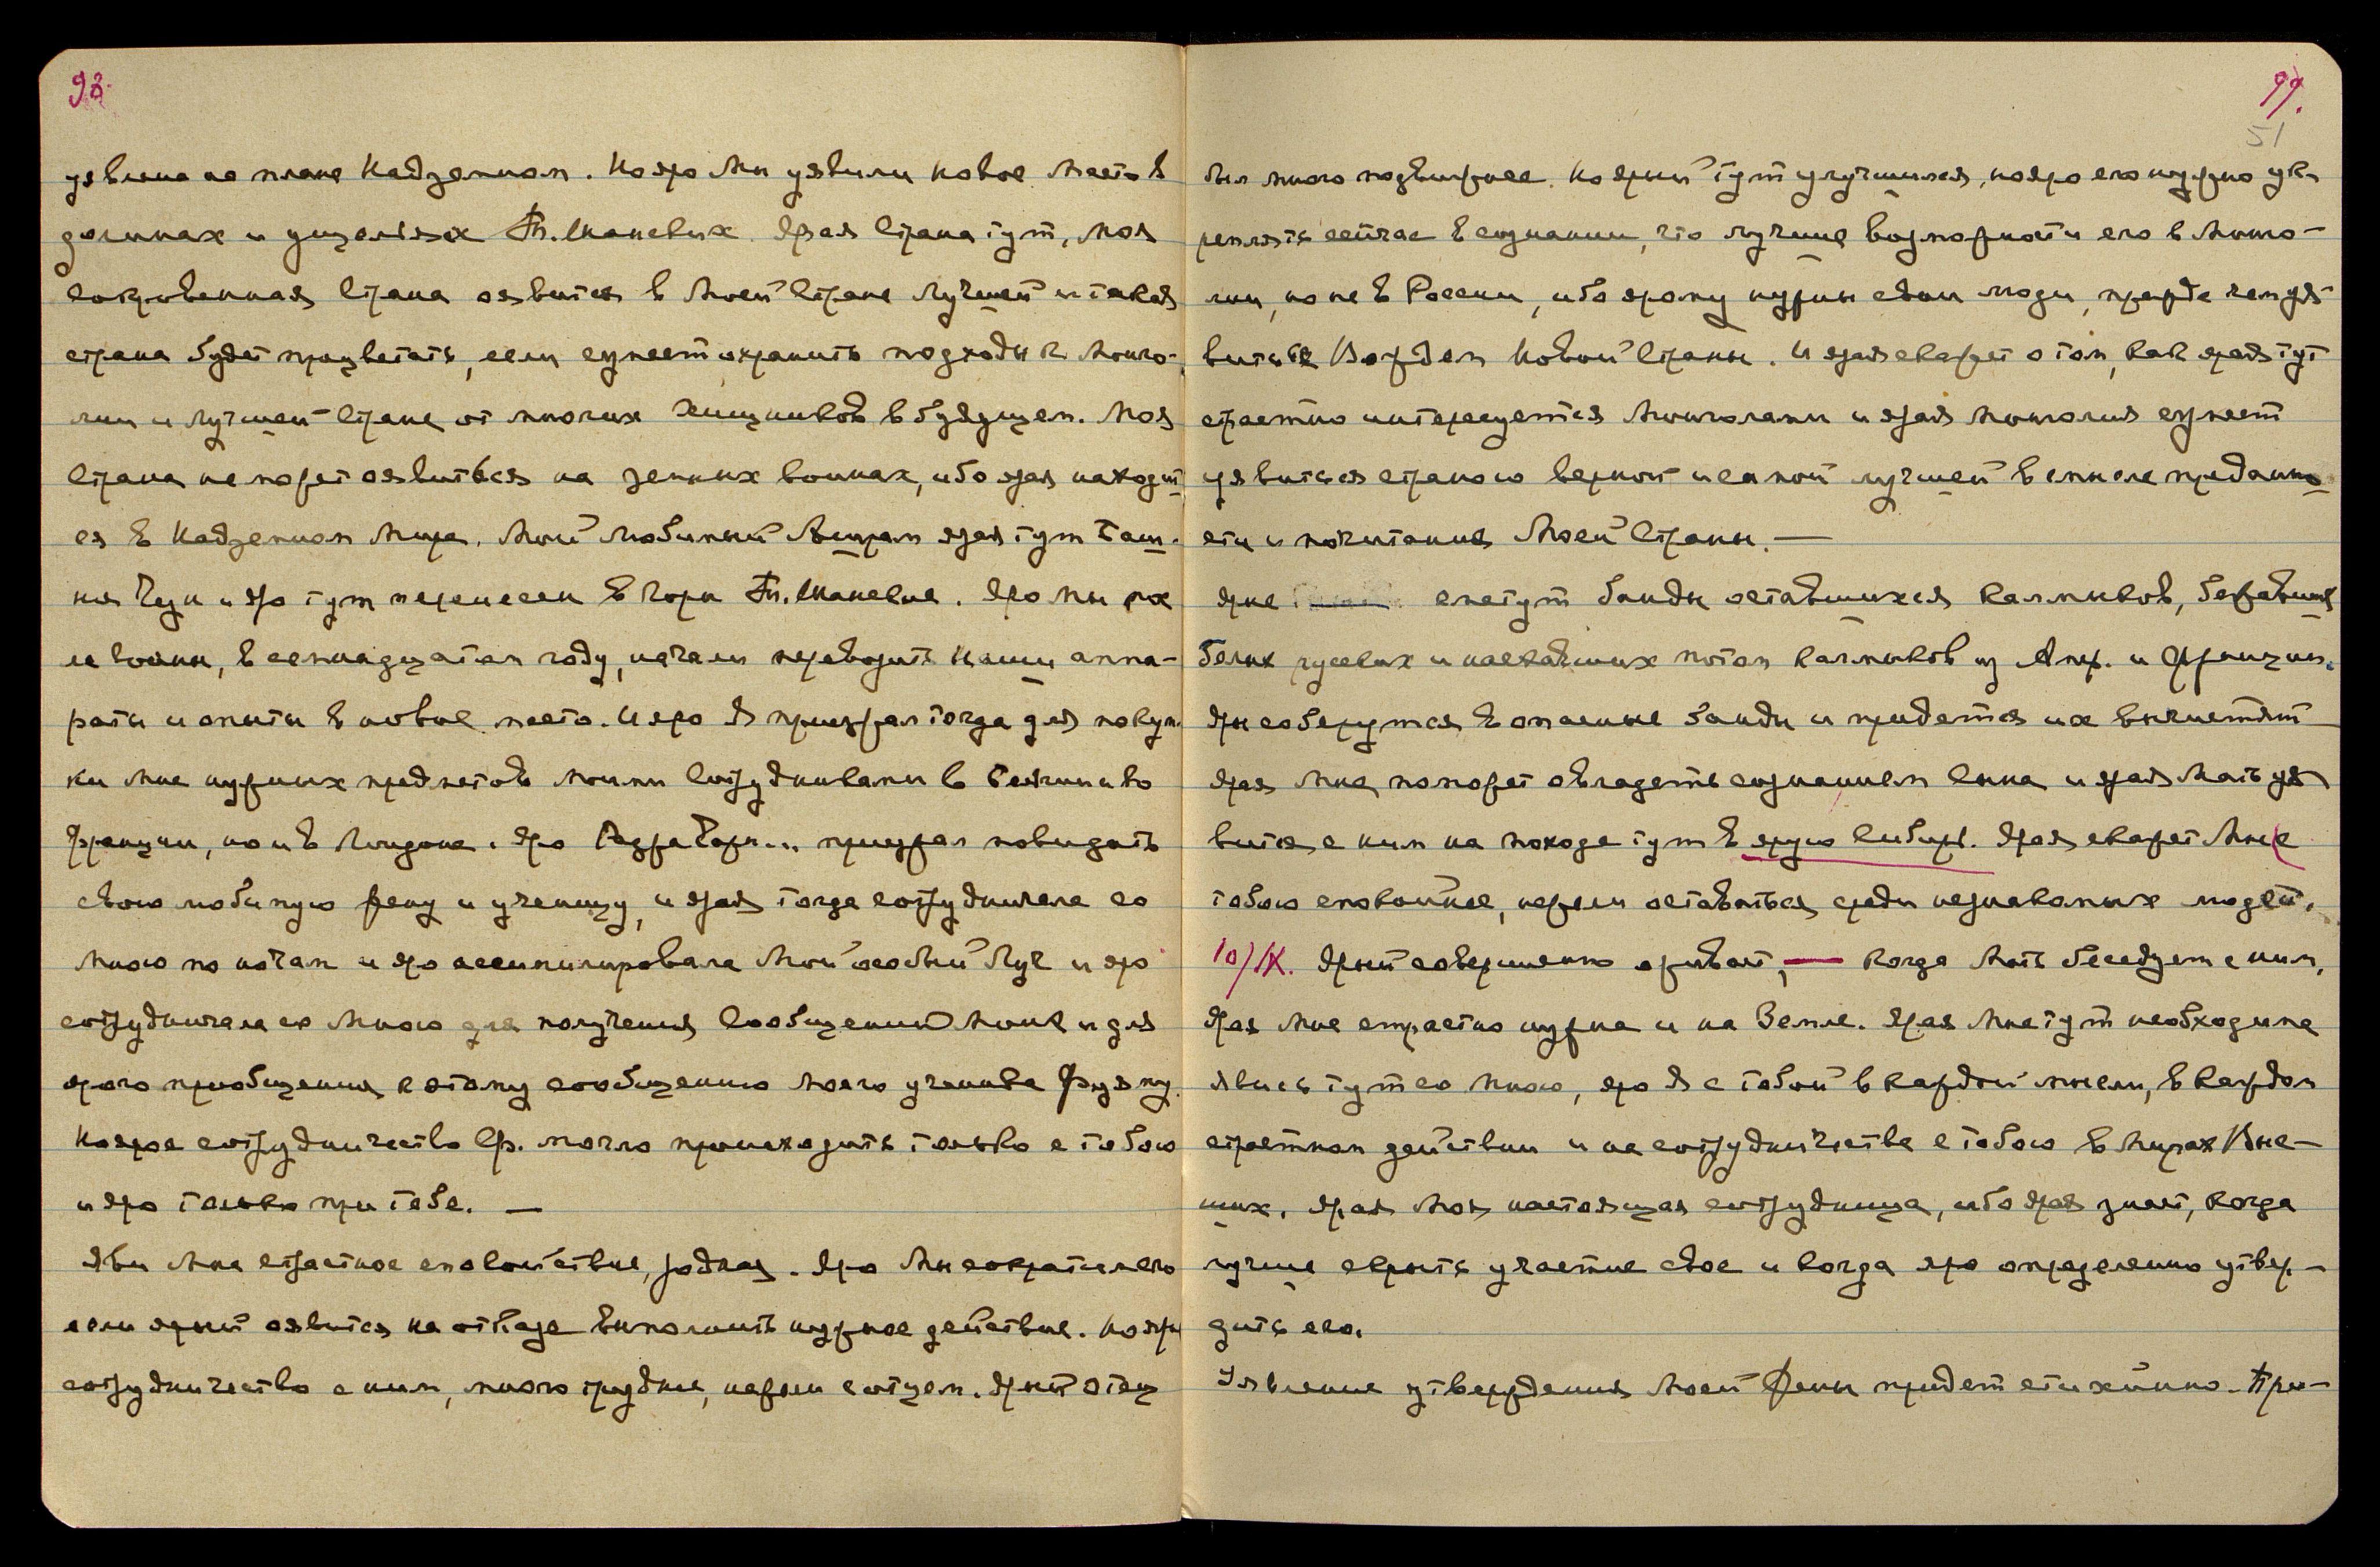 98.
уявлена на плане Надземном. Но яро Мы уявили новое место в
долинах и ущельях Тян.Шаневых. Ярая Страна тут, Моя
Сокровенная Страна оявится в Моей Стране Лучшей и такая
страна будет процветать, если сумеет охранить подходы к Монго-
лии и Лучшей Стране от многих хищников в будущем. Моя
Страна не может оявиться на земных войнах, ибо ярая находит-
ся в Надземном Мире. Мой любимый Ашрам ярая тут Таш.
ми Чун и яро тут перенесен в Горы Тян.Шаневые. Яро мы
ле войны, в семнадцатом году, начали перевозить Наши аппа-
раты и опыты в новое место. И яро Я приезжал тогда для покуп-
ки Мне нужных предметов моими Сотрудниками в и во
Франции, но и в Лондоне. Яро приезжал повидать
свою любимую Жену и ученицу, и ярая тогда сотрудничала со
Мною по ночам и яро ассимилировала Мой особый Луч и яро
сотрудничала со Мною для получения Сообщений Моих и для
ярого приобщения к этому сообщению Моего ученика
Но ярое сотрудничество Ур. могло происходить только с тобою
и яро только при тебе. —
Яви Мне страстное спокойствие, родная. Яро Мы сократим его
если ярый оявится на отказе выполнить нужное действие. Но яры
сотрудничество с ним, много труднее, нежели с отцом. Ярый отец
99.
51
был много подвижнее. Но ярый тут улучшился, но яро его нужно ук-
реплять сейчас в сознании, что лучшие возможности его в Монго-
лии, но не в России, ибо ярому нужны свои люди, прежде чем уя-
виться Вождем Новой Страны. И ярая скажет о том, как ярая тут
страстно интересуется Монголами и ярая Монголия сумеет
уявиться страною верной и самой лучшей в смысле преданно-
сти и почитания Моей Страны. —
Ярые снетут банды оставшихся калмыков, бежавших
белых русских и наехавших потом калмыков из Амер. и Франции.
Яры соберутся в опасные банды и придется их вычистить
Ярая Мне поможет овладеть сознанием Сына и ярая Мать уя-
вится с ним на походе тут в ярую Сибирь. Ярая скажет Мне с
тобою спокойнее, нежели оставаться среди незнакомых людей.
10/IX. Ярый совершенно оживает, — когда Мать беседует с ним,
Ярая Мне страстно нужна и на Земле. Ярая Мне тут необходима
явись тут со Мною, яро Я с тобой в каждой мысли, в каждом
страстном действии и на сотрудничестве с тобою в Мирах Выс-
ших. Ярая Моя настоящая сотрудница, ибо ярая знает, когда
лучше скрыть участие свое и когда яро определенно утвер-
дить его.
Уявление утверждения Моей Жены придет стихийно. При-